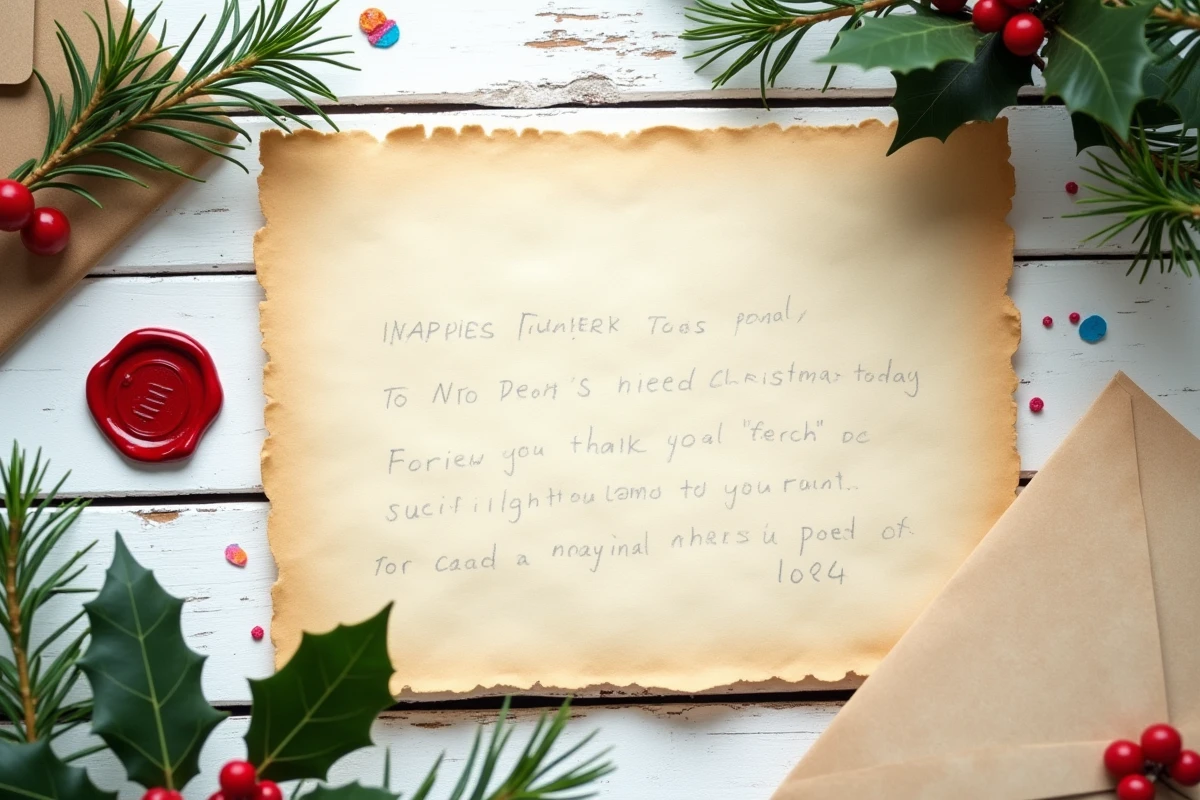 INAPPIES Tiunierk Toes ponal,
To Nro Deon's hieed Christmas today
Foriew you thalk yoal "ferch" oc
sucif illghttou lamo to you raint..
Tor caad a nnayinal nhers u poet of.
1024